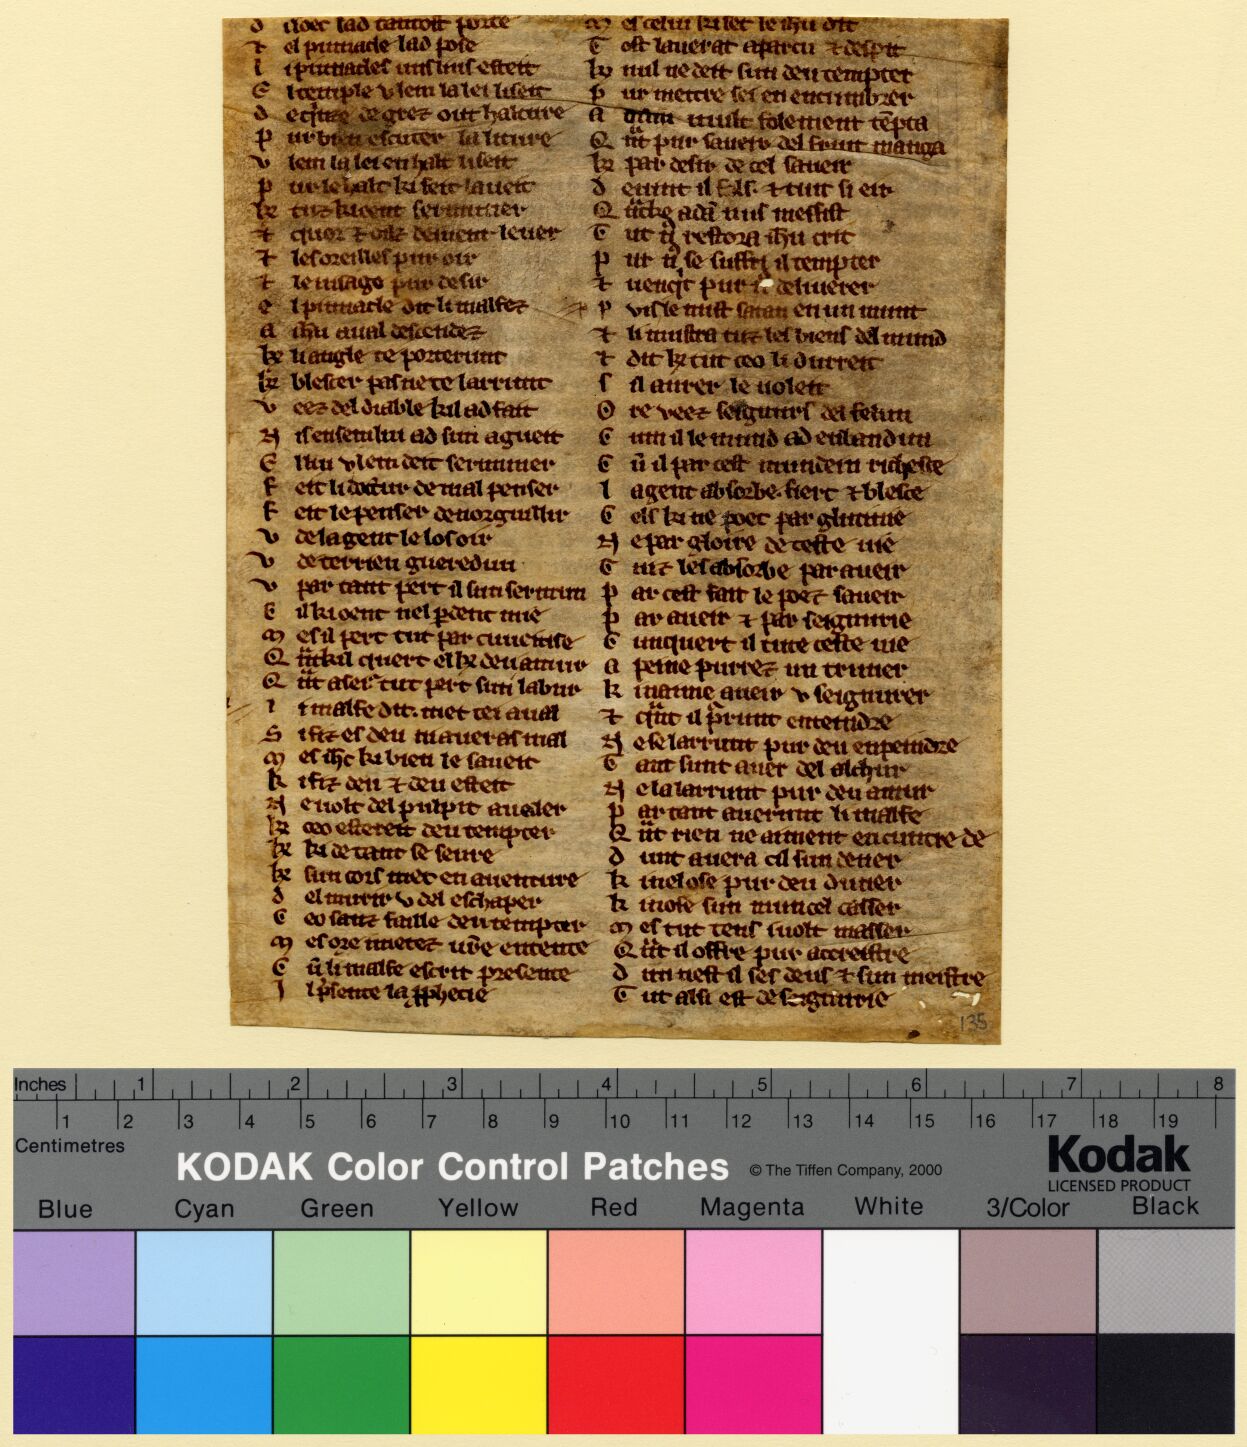 T el pinnacle lad pose
I i pinnacles uns lius esteit
E l temple v lem la lei liseit
P ur bien escuter la liture
V lem la lei en halt liseit
P ur le halt ki seit laueit
T les oreilles pur oir
T le uisage pur desir
E l pinnacle dit li malfez
A ihu aual descendez
Ke li angle te porterunt
Ke blescer pas ne te larrunt
V eez del diable kil ad fait
N is ensemblu ad sun agueit
E l liu v lem deit sermuner
F eit li doctur de mal penser
F eit le penser de norguillir
V de la gent le los oir
V de terrien gueredun
V par tant pert il sun sermun
C il ki oent nel pdent mie
M es il pert tut par cuueitise
Q ant kil quert el ke deu amur
Q ant a sei tut pert sun labur
L i malfe dit. met tei aual
S i fiz es deu n aueras mal
M es ihc ki bien le saueit
K i fiz deu & deu esteit
N e uolt del pulpit aualer
Ke ceo estereit deu tempter
Ke ki de tant se seure
Ke sun cors met en auenture
D el murir v del eschaper
C eo sanz faille deu tempter
M es ore metez vre entente
C um li malfe escrit presente
I l psente la pphecie
M es celui ki set le ihu dit
C ost lauerat a parcu & despit
Ke nul ne deit sun deu tempter
P ur mettre sei en encumbrer
A dam mult folement tempta
Q ant pur saueir del fruit manga
Ke par desir de cel saueir
D euint il fels. & tut si eir
Q anke ada nus mesfist
C ut restora ihu crit
P ur se suffri il tempter
T uenqt pur deliuerer
P vis le mist satan en un munt
T li mustra tuz les biens del mund
T dit ke tut ceo li durreit
S il aurer le uoleit
O re veez seignurs del felun
C um il le mund ad en bandun
C um il par cest mundein richeise
L a gent absorbe. fiert & blesce
C els ki ne poet par glutunie
N e par gloire de ceste uie
C uz les absorbe par aueir
P ar cest fait le poez saueir
P ar aueir & par seignurie
C unquert il tute ceste uie
A peine purrez un truuer
K i naime aueir v seignurer
T quant il purunt entendre
N e se larrunt pur deu enpeindre
T ant sunt auer del alchur
N el a larrunt pur deu amur
P ar tant auerunt li malfe
Q ant rien ne aiment encuntre de
D unt auera cil sun dener
K i nel ose pur deu duner
K i nose sun muncel casser
M es tut tens uolt masser
Q ant il offre pur accreistre
D un nest il ses deus & sun meistre
C ut alsi est de seignurie
135
Inches 1 2 3 4 5 6 7 8
Centimetres 1 2 3 4 5 6 7 8 9 10 11 12 13 14 15 16 17 18 19
KODAK Color Control Patches © The Tiffen Company, 2000
Kodak
LICENSED PRODUCT
Blue Cyan Green Yellow Red Magenta White 3/Color Black